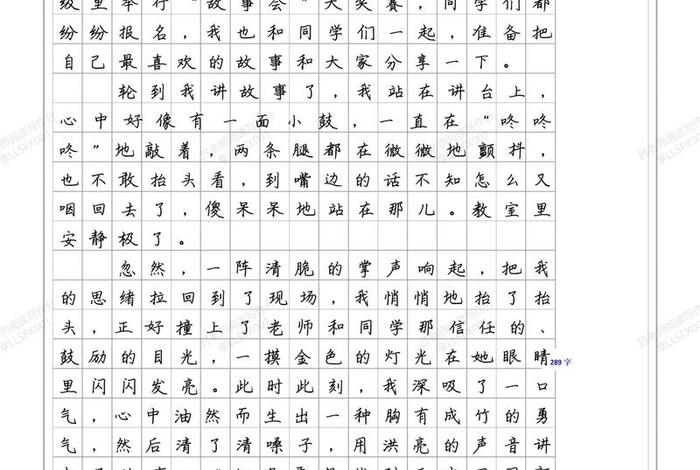 级里举行“故事会”大奖赛，同学们都
纷纷报名，我也和同学们一起，准备把
自己最喜欢的故事和大家分享一下。
轮到我讲故事了，我站在讲台上，
心中好像有一面小鼓，一直在“咚咚
咚”地敲着，两条腿都在微微地颤抖，
也不敢抬头看，到嘴边的话不知怎么又
咽回去了，傻呆呆地站在那儿。教室里
安静极了。
忽然，一阵清脆的掌声响起，把我
的思绪拉回到了现场，我悄悄地抬了抬
头，正好撞上了老师和同学那信任的、
鼓励的目光，一摸金色的灯光在她眼睛
289字
里闪闪发亮。此时此刻，我深吸了一口
气，心中油然而生出一种胸有成竹的勇
气，然后清了清嗓子，用洪亮的声音讲